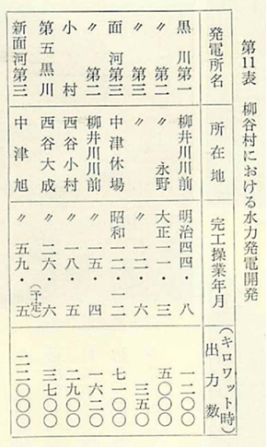 第11表　柳谷村における水力発電開発
発電所名　所在地　完工操業年月　出力数(キロワット時)
黒川第一　柳井川川前　明治四四・八　一二〇〇
〃　第二　〃　永野　大正一一・三　五〇〇〇
〃　第三　〃　〃　一二・六　三五〇
面河第三　中津休場　昭和一二・一二　七一〇〇
〃　第二　柳井川川前　〃　一五・四　一六二〇
小村　西谷小村　〃　一八・五　二九〇〇
第五黒川　西谷大成　〃　二六・六　三七〇〇
新面河第三　中津旭　〃　(予定)五九・五　二二〇〇〇